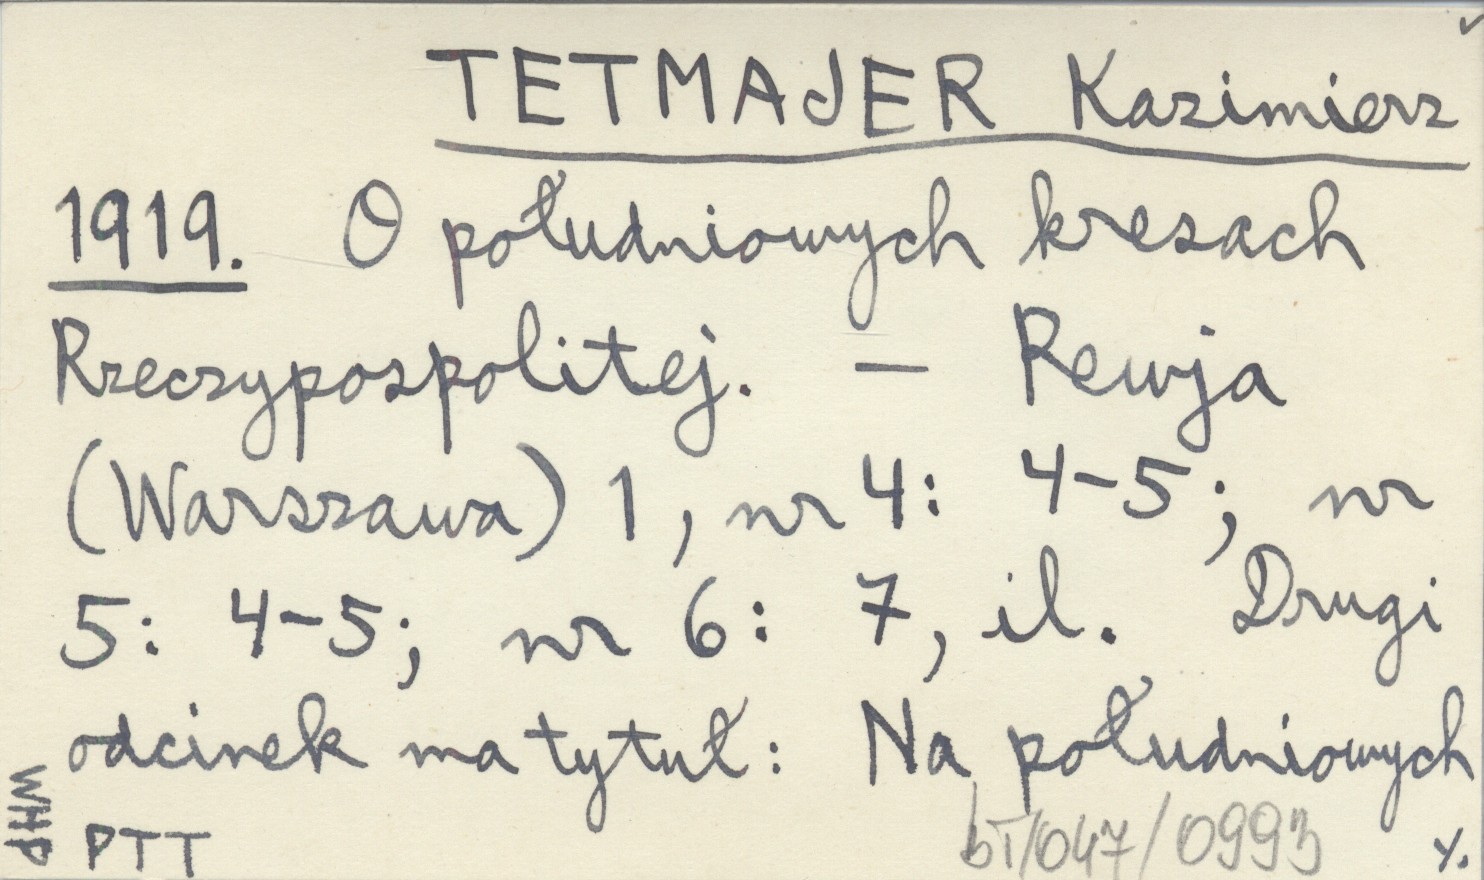 TETMAJER Kazimierz
1919. O południowych kresach
Rzeczypospolitej. — Rewja
(Warszawa) 1, nr 4: 4-5; nr
5: 4-5; nr 6: 7, il. Drugi
odcinek ma tytuł: Na południowych
WHP PTT bT/047/0993 ./.